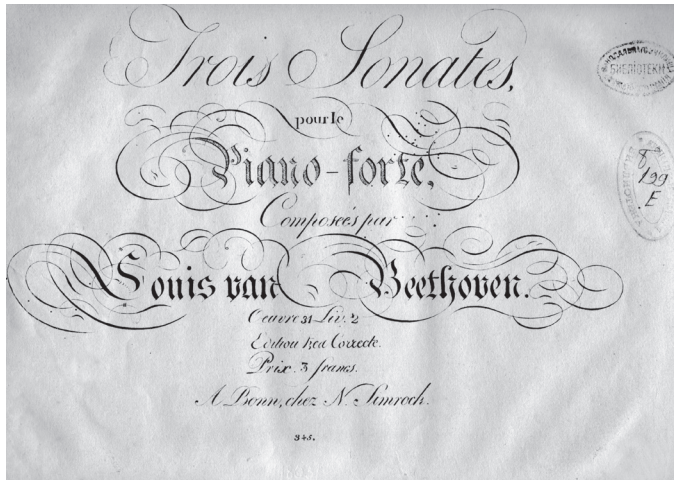 Trois Sonates,
pour le
Piano-forte,
Composées par
Louis van Beethoven.
Oeuvre 31 Liv. 2
Edition très Correcte.
Prix. 3 francs.
A Bonn, chez N. Simrock.
345.
8
199
E